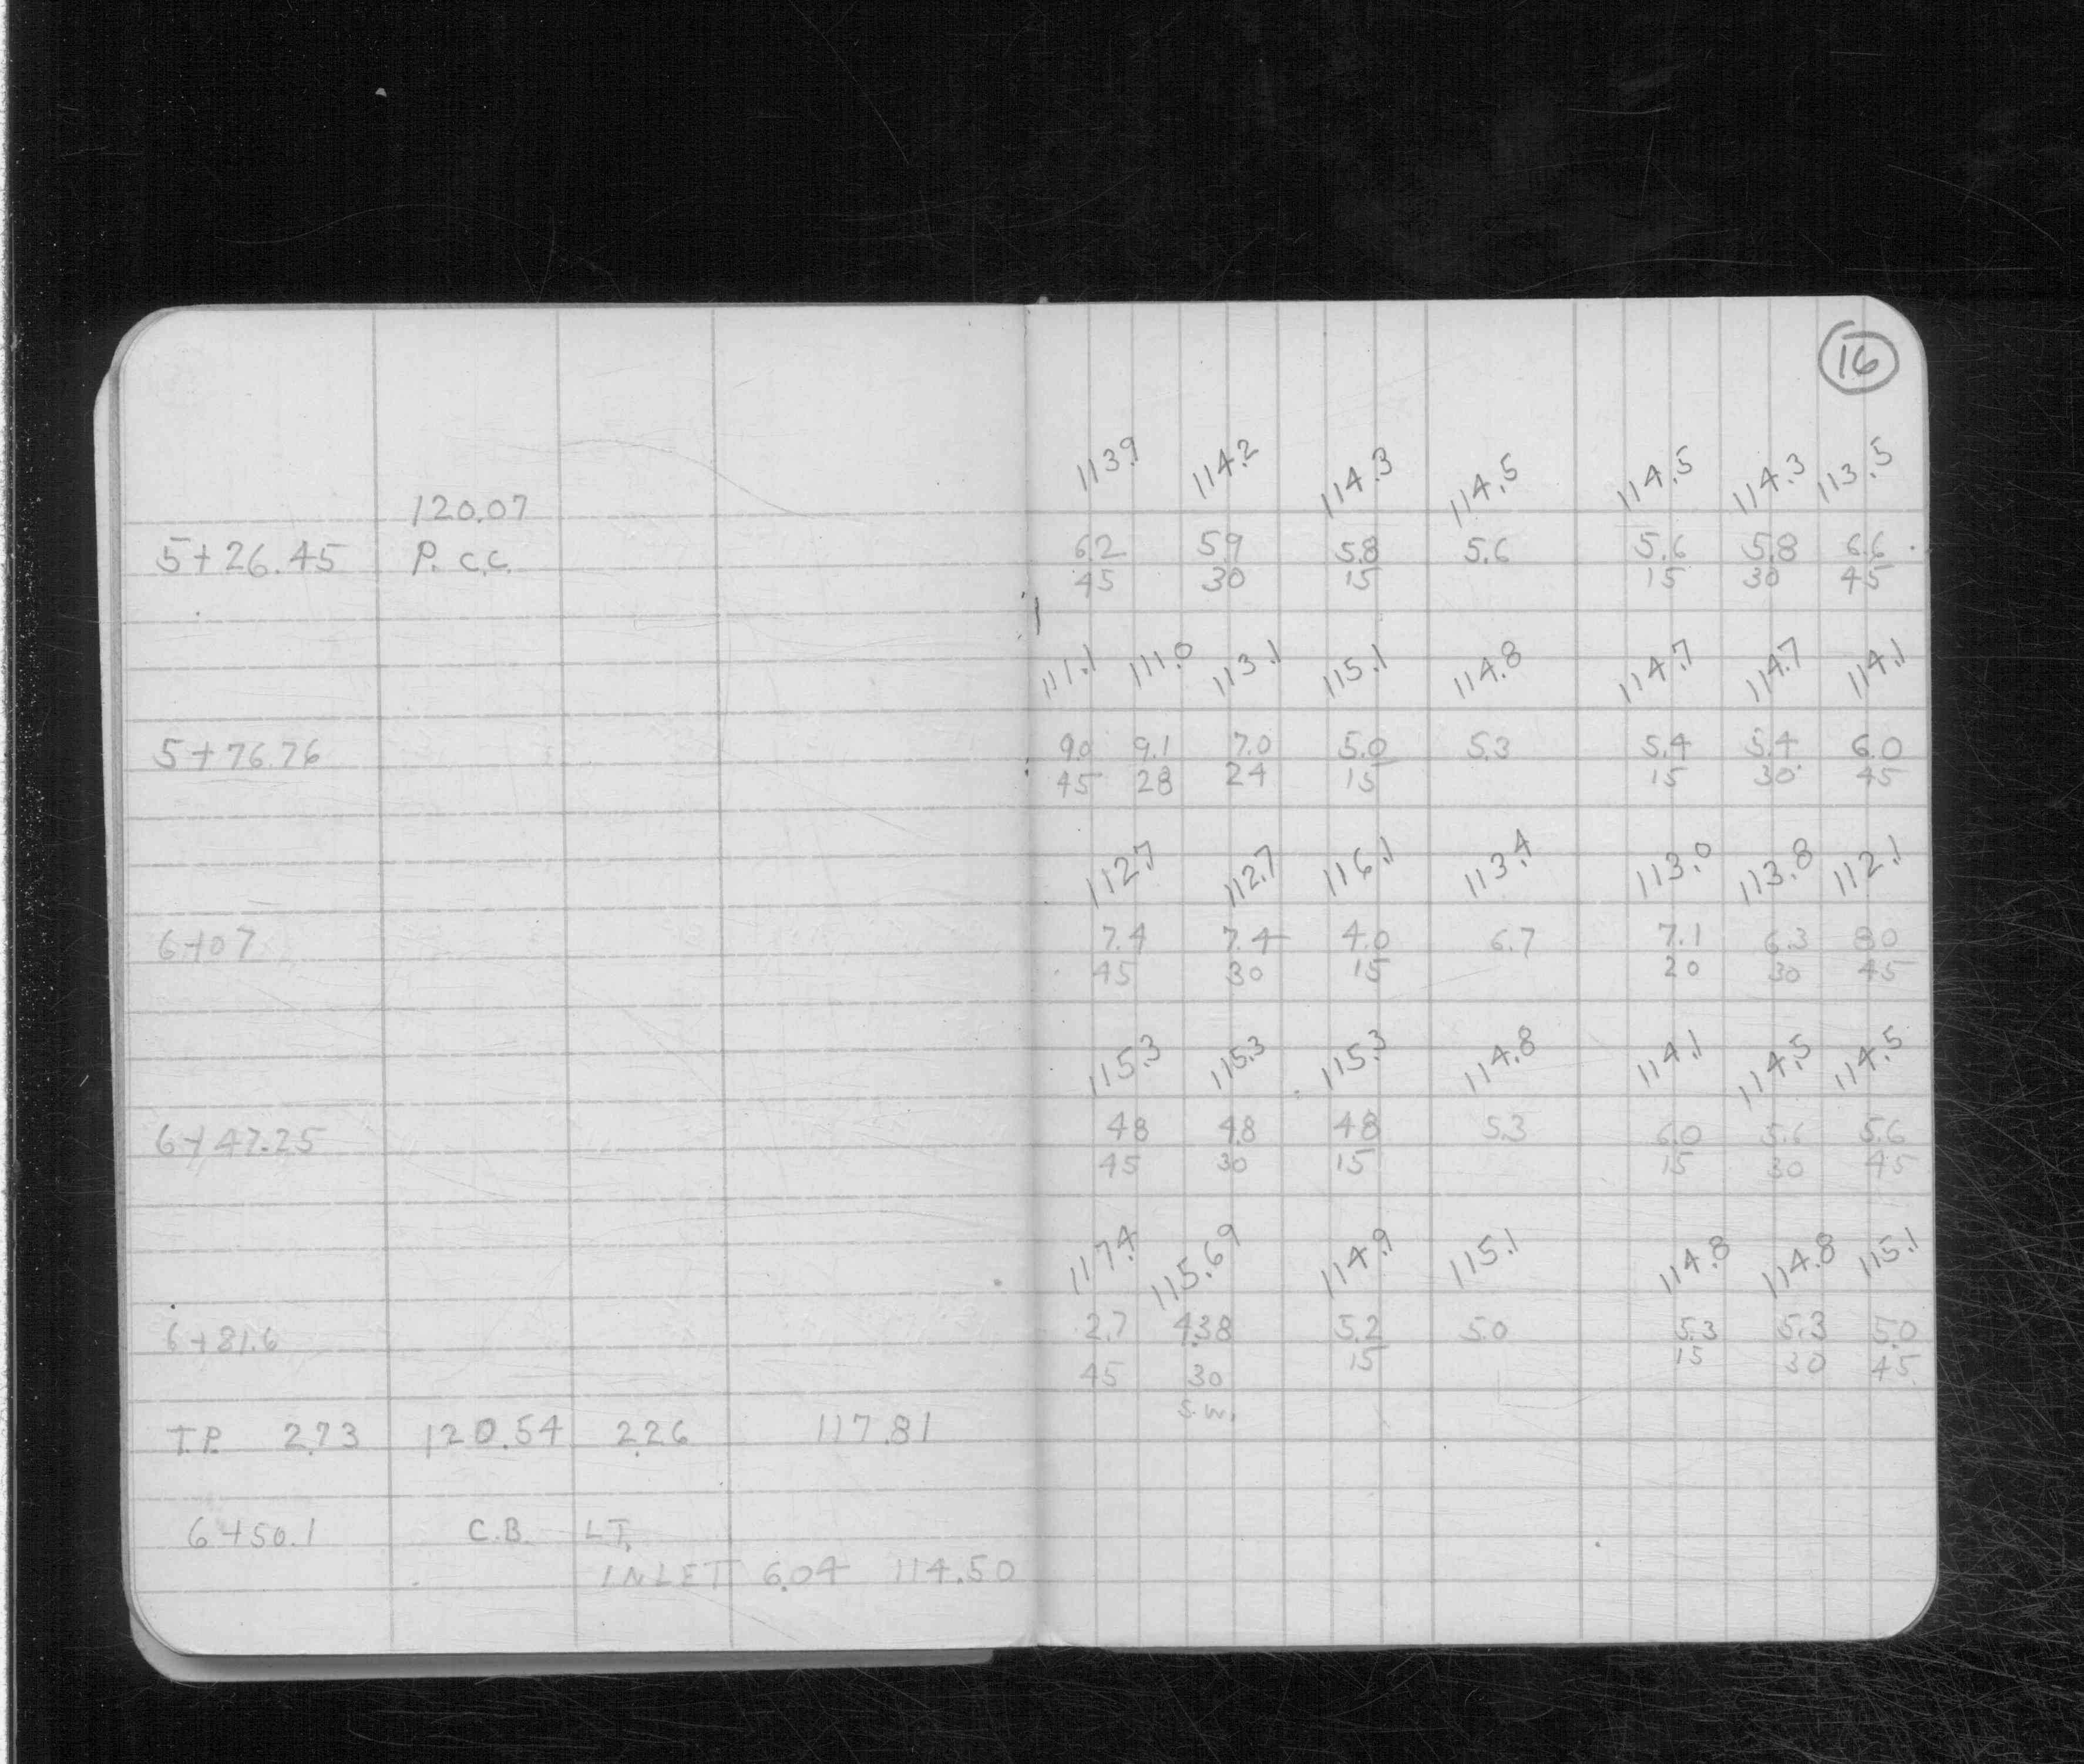 16
113.9 114.2 114.3 114.5 114.5 114.3 113.5
120.07
5+26.45 P.C.C. 6.2 5.9 5.8 5.6 5.6 5.8 6.6
45 30 15 15 30 45
111.1 111.0 113.1 115.1 114.8 114.7 114.7 114.1
5+76.76 9.0 9.1 7.0 5.0 5.3 5.4 5.4 6.0
45 28 24 15 15 30 45
112.7 112.7 116.1 113.4 113.0 113.8 112.1
6+07 7.4 7.4 4.0 6.7 7.1 6.3 8.0
45 30 15 20 30 45
115.3 115.3 115.3 114.8 114.1 114.5 114.5
6+47.25 4.8 4.8 4.8 5.3 6.0 5.6 5.6
45 30 15 15 30 45
117.4 115.69 114.9 115.1 114.8 114.8 115.1
6+81.6 2.7 4.38 5.2 5.0 5.3 5.3 5.0
45 30 15 15 30 45
S.W.
T.P. 2.73 120.54 2.26 117.81
6+50.1 C.B. LT.
INLET 6.04 114.50